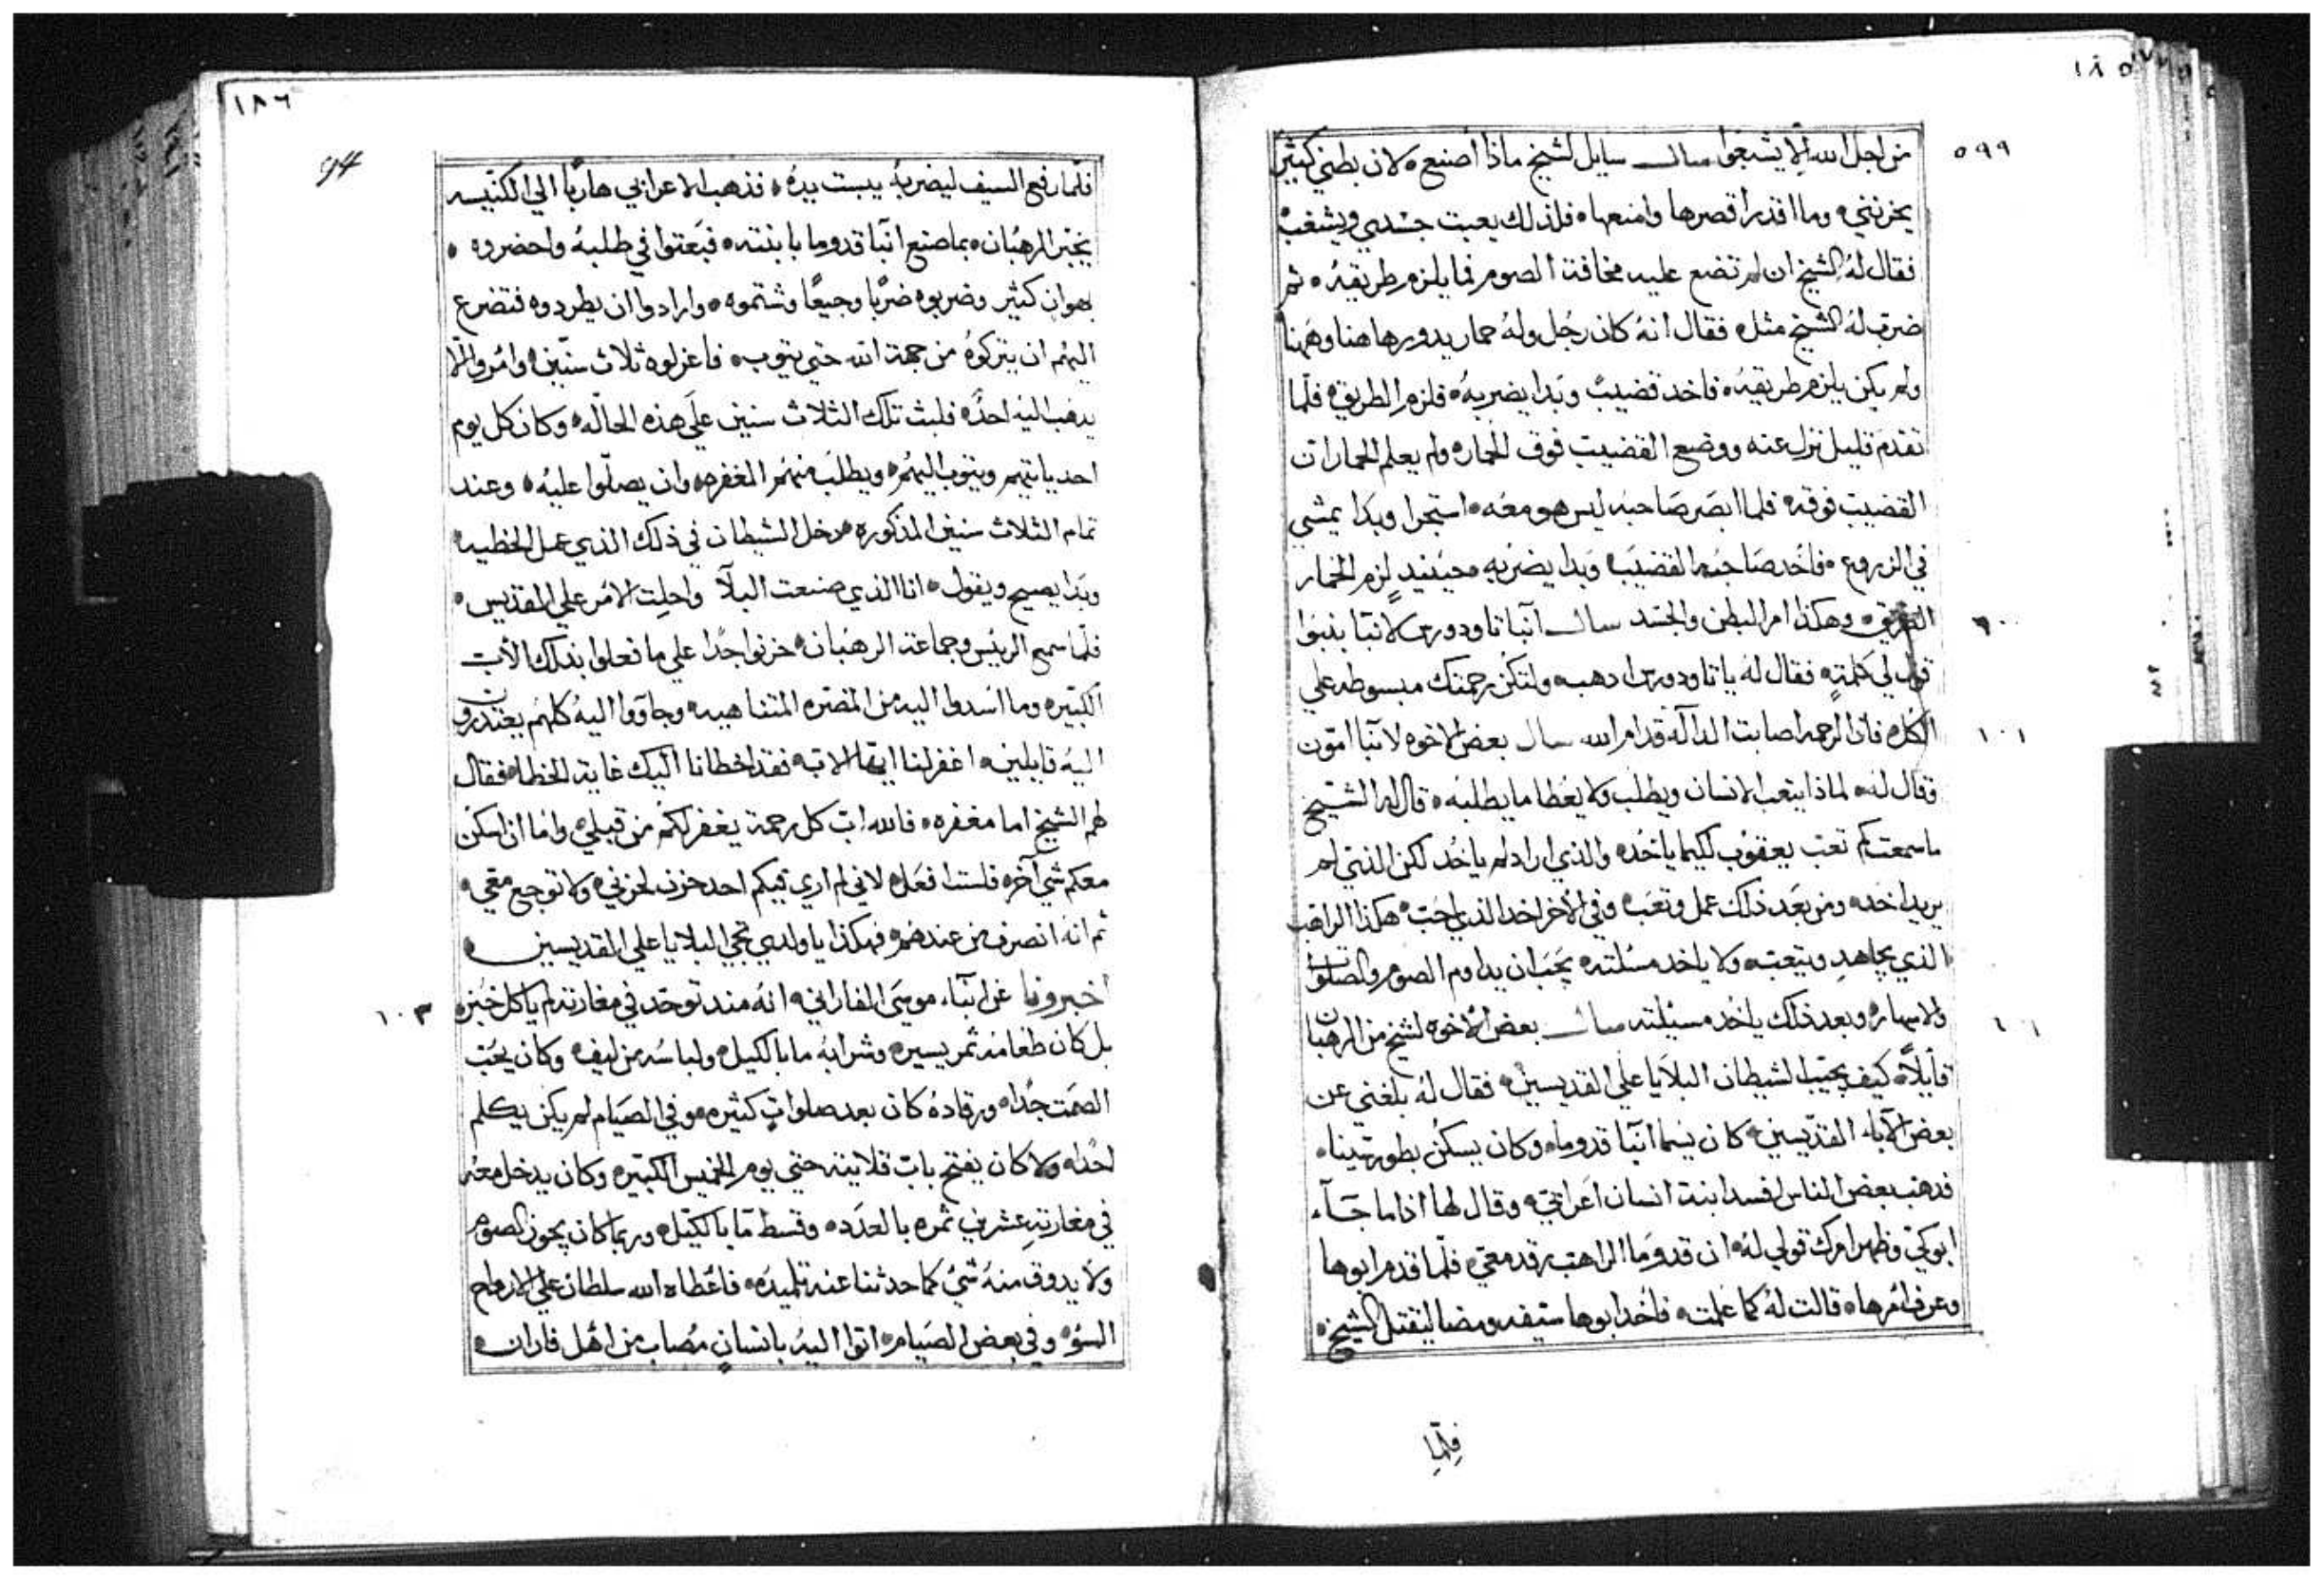 ١٨٥
٥٩٩
من اجل الله الا يشبعوا سال سايل لشيخ ماذا اصنع لان بطني كثير
يحزنني وما اقدر اقصرها وامنعها فلذلك يعبت جسدي ويشغب
فقال له الشيخ ان لم تضع عليه مخافة الصوم فما يلزم طريقه ثم
ضرب له الشيخ مثل فقال انه كان رجل وله حمار يدور هاهنا وهاهنا
ولم يكن يلزم طريقه فاخد قضيب وبدا يضربه فلزم الطريق فلما
تقدم قليل نزل عنه ووضع القضيب فوق الحمار ولم يعلم الحمار ان
القضيب فوقه فلما ابصر صاحبه ليس هو معه استجرا وبدا يمشي
في الزروع فاخد صاحبه القضيب وبدا يضربه حينيد لزم الحمار
الطريق وهكذا امر البطن والجسد سال انبا تاودورس لانبا بنبوا
قول لي كلمة فقال له يا تاودورس ادهب ولتكن رحمتك مبسوطه علي
الكل فان الرحمه اصابت الدالة قدام الله سال بعض الاخوه لانبا امون
١٠١
وقال له لماذا يتعب الانسان ويطلب ولا يعطا ما يطلبه قال له الشيخ
ما سمعت كم تعب يعقوب لكيما ياخده والذي اراد لم ياخد لكن الذي لم
يريد اخده ومن بعد ذلك عمل وتعب وفي الاخر اخد الذي احب هكذا الراهب
الذي يجاهد ويتعب ولا ياخد مسئلته يجب ان يداوم الصوم والصلوات
والاسهار وبعد ذلك ياخد مسئلته سال بعض الاخوه لشيخ من الرهبان
قايلاً كيف يجيب الشيطان البلايا علي القديسين فقال له بلغني عن
بعض الآباء القديسين كان يسما انبا قدوما وكان يسكن بطور سينا
فدهب بعض الناس افسد ابنة انسان اعرابي وقال لها اذا ما جآء
ابوكي وظهر امرك قولي له ان قدوما الراهب رقد معي فلما قدم ابوها
وعرف امرها قالت له كما علمت فاخد ابوها سيفه ومضا ليقتل الشيخ
فلما
١٨٦
94
فلما رفع السيف ليضربه يبست يده فذهب الاعرابي هارباً الي الكنيسه
يخبر الرهبان بما صنع انبا قدوما بابنته فبعتوا في طلبه واحضروه
بهوان كثير وضربوه ضربا وجيعا وشتموه وارادوا ان يطردوه فتضرع
اليهم ان يتركوه من جهة الله حتي يتوب فاعزلوه ثلاث سنين وامروا الا
يدهب اليه احد فلبث تلك الثلاث سنين على هذه الحاله وكان كل يوم
احد ياتيهم ويتوب اليهم ويطلب منهم المغفره وان يصلوا عليه وعند
تمام الثلاث سنين المذكوره دخل الشيطان في ذلك الذي عمل الخطيه
وبدا يصيح ويقول انا الذي صنعت البلآ واحلت الامر علي القديس
فلما سمع الريس وجماعة الرهبان حزنوا جداً علي ما فعلوا بذلك الاب
الكبير وما اسدوا اليه من المضره المتناهيه وجاووا اليه كلهم يعتدرون
اليه قايلين اغفر لنا ايها الاب فقد اخطانا اليك غاية الخطا فقال
لهم الشيخ اما مغفره فالله اب كل رحمة يغفر لكم من قبلي واما ان اسكن
معكم شي آخر فلست افعل لاني لم اري فيكم احد حزن لحزني ولا توجع معي
ثم انه انصرف من عندهم فهكذا يا ولدي تجي البلايا علي القديسين
١٠٣
اخبرونا عن انباء موسى الفاراني انه مند توحد في مغارته لم ياكل خبز
بل كان طعامه ثمر يسير وشرابه ما بالكيل ولباسه من ليف وكان يحب
الصمت جدا ورقاده كان بعد صلوات كثيره وفي الصيام لم يكن يكلم
احدا ولا كان يفتح باب قلايته حتي يوم الخميس الكبير وكان يدخل معه
في مغارته عشرين ثمره بالعدد وقسط ما بالكيل وربما كان يجوز الصوم
ولا يدوق منه شي كما حدثنا عنه تلميده فاعطاه الله سلطان علي الارواح
السؤ وفي بعض الصيام اتوا اليه بانسان مصاب من اهل فاران